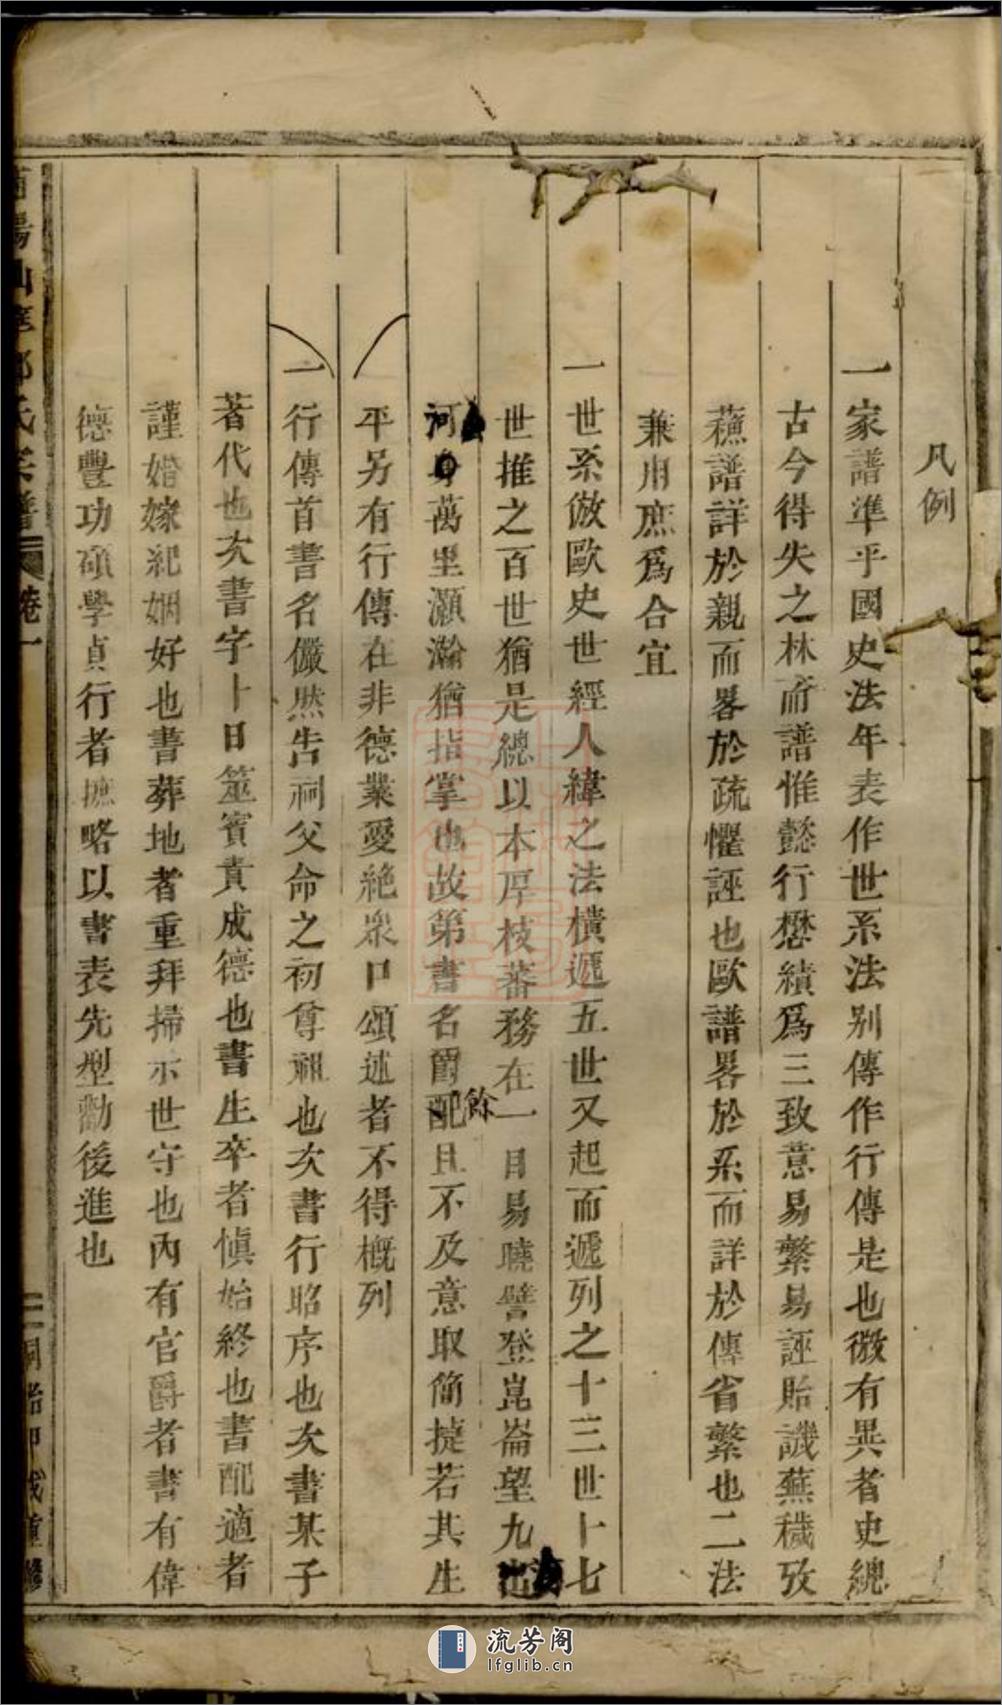 凡例
一家譜準乎國史法年表作世系法别傳作行傳是也微有異者史總
古今得失之林而譜惟懿行懋績爲三致意易繁易誣貽譏蕪穢攷
蘓譜詳於親而畧於疏懼誣也歐譜畧於系而詳於傳省繁也二法
兼用庶爲合宜
一世系倣歐史世經人緯之法横遞五世又起而遞列之十三世十七
世推之百世猶是總以本厚枝蕃務在一目易曉譬登崑崙望九
河萬里灝瀚猶指掌也故第書名爵配餘且不及意取簡捷若其生
平另有行傳在非德業愛絶衆口頌述者不得槪列
一行傳首書名儼然告祠父命之初尊祖也次書行昭序也次書某子
著代也次書字卜日筮賓責成德也書生卒者愼始終也書配適者
謹婚嫁紀姻好也書葬地者重拜掃示世守也內有官爵者書有偉
德豐功碩學貞行者摭略以書表先型勸後進也
氏宗譜 卷一
重修
流芳阁
lfglib.cn